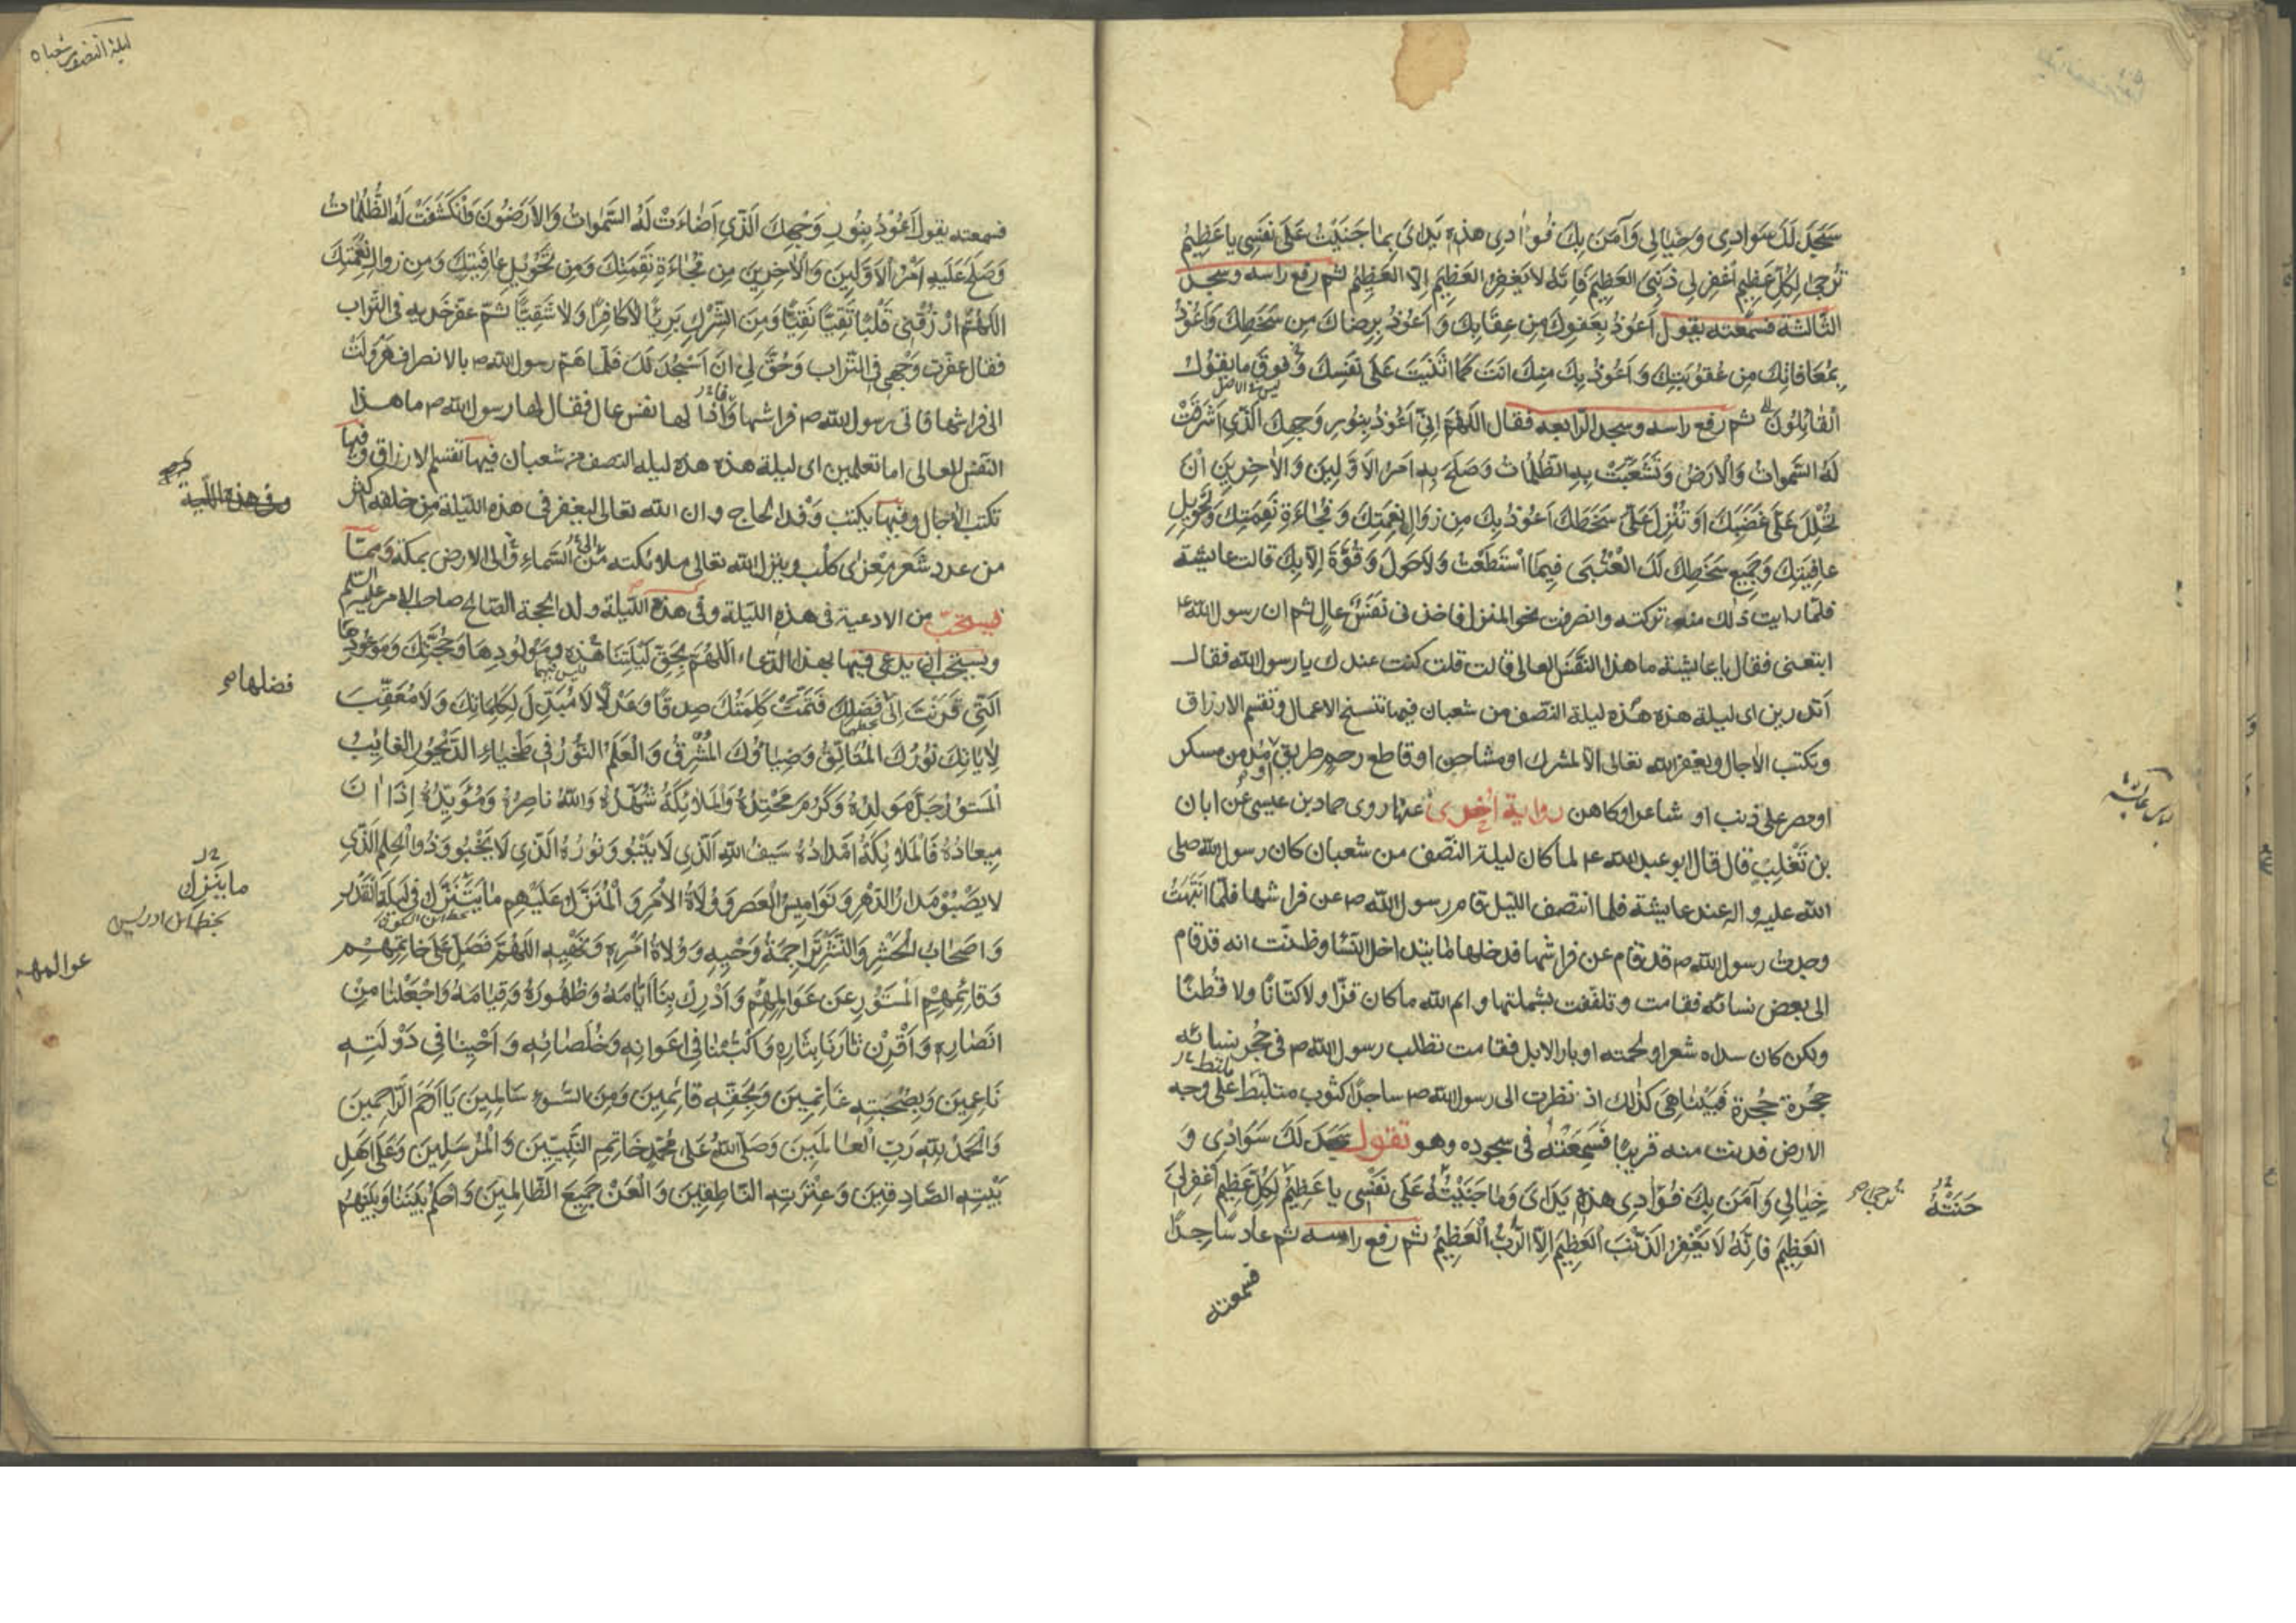 سَجَدَ لَكَ سَوَادِي وَخَيَالِي وَآمَنَ بِكَ فُؤَادِي هذِهِ يَدَايَ بِمَا جَنَيْتُ عَلَى نَفْسِي يا عَظِيمُ
تُرجىٰ لِكُلِّ عَظِيمٍ اغْفِر لِي ذَنبِيَ العَظِيمَ فَاِنَّهُ لا يَغفِرُ العَظِيمَ اِلّا العَظِيمُ ثم رفع راسه وسجد
الثالثة فسمعته يقول اَعُوذُ بِعَفوِكَ مِن عِقَابِكَ وَ اَعُوذُ بِرِضَاكَ مِن سَخَطِكَ وَاَعُوذُ
بِمُعَافَاتِكَ مِن عُقُوبَتِكَ وَ اَعُوذُ بِكَ مِنكَ انتَ كَمَا اثنَيتَ عَلَى نَفسِكَ وَفوقَ ما يقُولُ
القَائِلُونَ ثم رفع راسه وسجد الرابعه فقال اللهُمّ اِنّي اَعُوذُ بِنُورِ وَجهِكَ الّذي اَشرَقَت
لَهُ السَّموَاتُ وَالْارَضُ وَتَشَعَّبَتْ بِهِ الظُّلُمَاتُ وَصَلَحَ بِهِ اَمرُ الاَوّلِينَ وَالاٰخِرِينَ اَنْ
تُحَلِّلَ عَلَيَّ غَضَبَكَ اَو تُنْزِلَ عَلَيَّ سَخَطَكَ اَعُوذُ بِكَ مِن زَوَالِ نِعمَتِكَ وَ فُجَاءَةِ نَقِمَتِكَ وَتَحوِيلِ
عافِيَتِكَ وَجَمِيعِ سَخَطِكَ لَكَ العُتْبَى فِيمَا اسْتَطَعْتُ وَلاحَولَ وَقُوَّةَ اِلاّ بِكَ قالت عايشة
فلمّا رايت ذلك منه تركته وانصرفت نحو المنزل فاخذني نَفَسٌ عالٍ ثم ان رسول الله
اتبعنى فقال يا عايشة ما هذا النَّفَسُ العالي قالت قلت كنت عندك يا رسول الله فقال
اَتدرين اى ليلة هذه هذه ليلة النّصف من شعبان فيها تنسخ الاعمال وتقسم الارزاق
وتكتب الاٰجال ويغفر الله تعالى الا لمشرك او مشاحن او قاطع رحم او مدمن مسكر
او مصر على ذنب او شاعر او كاهن رواية اُخرى عنها روى حماد بن عيسى عن ابان
بن تَغْلِبٍ قال قال ابو عبد الله ع لما كان ليلة النّصف من شعبان كان رسول الله صلى
الله عليه واله عند عايشة فلما انتصف الليل قام رسول الله ص عن فراشها فلمّا انتَبَهَتْ
وجدت رسول الله ص قد قام عن فراشها فدخلها ما يتداخل النّسا وظنّت انه قد قام
الى بعض نسائه فقامت وتلففت بشملتها وايم الله ما كان قزّا ولا كتّانًا ولا قُطنًا
ولكن كان سداه شعرا ولحمته اوبار الابل فقامت تطلب رسول الله ص فى حُجرِ نسائه
حُجرة حُجرة فَبَيْنَا هِيَ كَذٰلك اذ نظرت الى رسول الله ص ساجدًا كثوب متلبّط على وجه
الارض فدنت منه قريبا فَسَمِعَتْهُ في سجوده وهو يقول سَجَدَ لَكَ سَوَادِى وَ
خيالي وَآمَنَ بِكَ فُؤَادِى هذِهِ يَدَاىَ وَما جَنَيْتُهُ عَلَى نَفْسِى يا عَظِيمُ لِكُلِّ عَظِيمٍ اغْفِر لِيَ
العَظِيمَ فَاِنَّهُ لَا يَغْفِرُ الذَّنبَ العَظِيمَ اِلّا الرَّبُّ الْعَظِيمُ ثم رفع راسه ثم عاد ساجدًا
فسمعته
ليلة النصف شعبان
فسمعته يقول اَعُوذُ بِنُورِ وَجهِكَ الَّذي اَضَاءَتْ لَهُ السَّمٰواتُ وَالاَرَضُونَ وَانْكَشَفَتْ لَهُ الظُّلُمَاتُ
وَصَلَحَ عَلَيهِ اَمْرُ الاَوّلِينَ وَالاٰخِرِينَ مِن فُجَاءَةِ نَقِمَتِكَ وَمِن تَحْوِيلِ عافِيَتِكَ وَمِن زوالِ نِعْمَتِكَ
اللهُمَّ ارْزُقْنِي قَلْبًا تَقِيًّا نَقِيًّا وَمِنَ الشِّركِ بَرِيًّا لاكافِرًا وَلا شَقِيًّا ثمّ عفّر خدّيه في التّراب
فقال عفّرت وَجْهِى فِى التّرابِ وَحُقَّ لِي اَنْ اَسْجُدَ لَكَ فلمّا همّ رسول الله ص بالانصراف هَروَلَتْ
الى فراشها فاتى رسول الله ص فراشها واذا لها نفس عال فقال لها رسول الله ص ما هذا
النّفَس العالى اما تعلمين اى ليلة هذه هذه ليله النصف من شعبان فيها تقسم الارزاق وفيها
تكتب الاجال وفيها يكتب وَفْد الحاج وان الله تعالى ليغفر فى هذه الليلة مِن خلقه اكثر
من عدد شَعر مِعزى كلب وينزل الله تعالى ملائكته من السّماء الى الارض بمكة وممّا
فيستحبّ من الادعية فى هذه الليلة وفى هذه اللّيلة ولد الحجة الصّالح صاحب الامر عليه السلم
ويستحبّ ان يدعى فيها بهذا الدّعاء اللهُمَّ بِحَقِّ لَيْلَتِنَا هٰذِهِ ومَولُودِهَا وَحُجَّتِكَ وَمَوعُودِهَا
الَّتِى قَرَنْتَ اِلَى فَضْلِهَا فَتَمَّتْ كَلِمَتُكَ صِدقًا وَعَدْلاً لا مُبَدِّلَ لِكَلِمَاتِكَ وَلا مُعَقِّبَ
لِاٰيَاتِكَ نُورُكَ المُتَأَلِّقُ وَضِيَاؤُكَ المُشْرِقُ وَالْعَلَمُ النُّورُ في طَخْيَاءِ الدَّيْجُورِ الغَائِبُ
المَستُورُ جَلَّ مَولِدُهُ وَكَرُمَ مَحْتِدُهُ وَالمَلاَئِكَةُ شُهَّدُهُ وَاللهُ ناصِرُهُ وَمُؤَيِّدُهُ اِذَا اٰنَ
مِيعادُهُ فَالمَلائِكَةُ اَمْدَادُهُ سَيفُ اللهِ الَّذي لا يَنْبُو وَنُورُهُ الَّذي لَا يَخْبُو وَذُو الْحِلْمِ الَّذِي
لا يَصْبُو مَدارُ الدَّهْرِ وَنَوَامِيسُ العَصرِ وَوُلاَةُ الاَمْرِ وَالْمُنَزَّلُ عَلَيْهِم مَا يَتَنَزَّلُ فِي لَيْلَةِ الْقَدْرِ
وَاَصْحَابُ الحَشْرِ وَالنَّشْرِ تَرَاجِمَةُ وَحْيِهِ وَوُلاَةُ اَمْرِهِ وَنَهْيِهِ اللهُمَّ فَصَلِّ عَلَى خَاتِمِهِم
وَقَائِمِهِمُ المَستُورِ عَن عَوَالِمِهِم وَاَدْرِك بِنَا اَيَّامَهُ وَظُهُورَهُ وَقِيَامَهُ وَاجْعَلْنَا مِن
انَصَارِهِ وَاَقْرِن ثَارَنَا بِثَارِهِ وَاكْتُبْنَا في اَعوَانِهِ وَخُلَصَائِهِ وَ اَحْيِنَا فِي دَوْلَتِهِ
نَاعِمِينَ وَبِصُحْبَتِهِ غَانِمِينَ وَبِحَقِّهِ قَائِمِينَ وَمِنَ السُّوءِ سَالِمِينَ يَا اَرحَمَ الرَّاحِمِينَ
وَالْحَمدُ للهِ رَبِّ الْعَالَمِينَ وَصَلَّى اللهُ عَلَى مُحَمَّدٍ خَاتِمِ النَّبِيّينَ وَالْمُرْسَلِينَ وَعَلَى اَهْلِ
بَيْتِهِ الصَّادِقِينَ وَعِتْرَتِهِ النَّاطِقِينَ وَالْعَنْ جَمِيعَ الظَّالِمِينَ وَاحْكُمْ بَيْنَنَا وَبَيْنَهُم
فضلها
ما ينزل
بخط ابن ادريس
عوالمهم